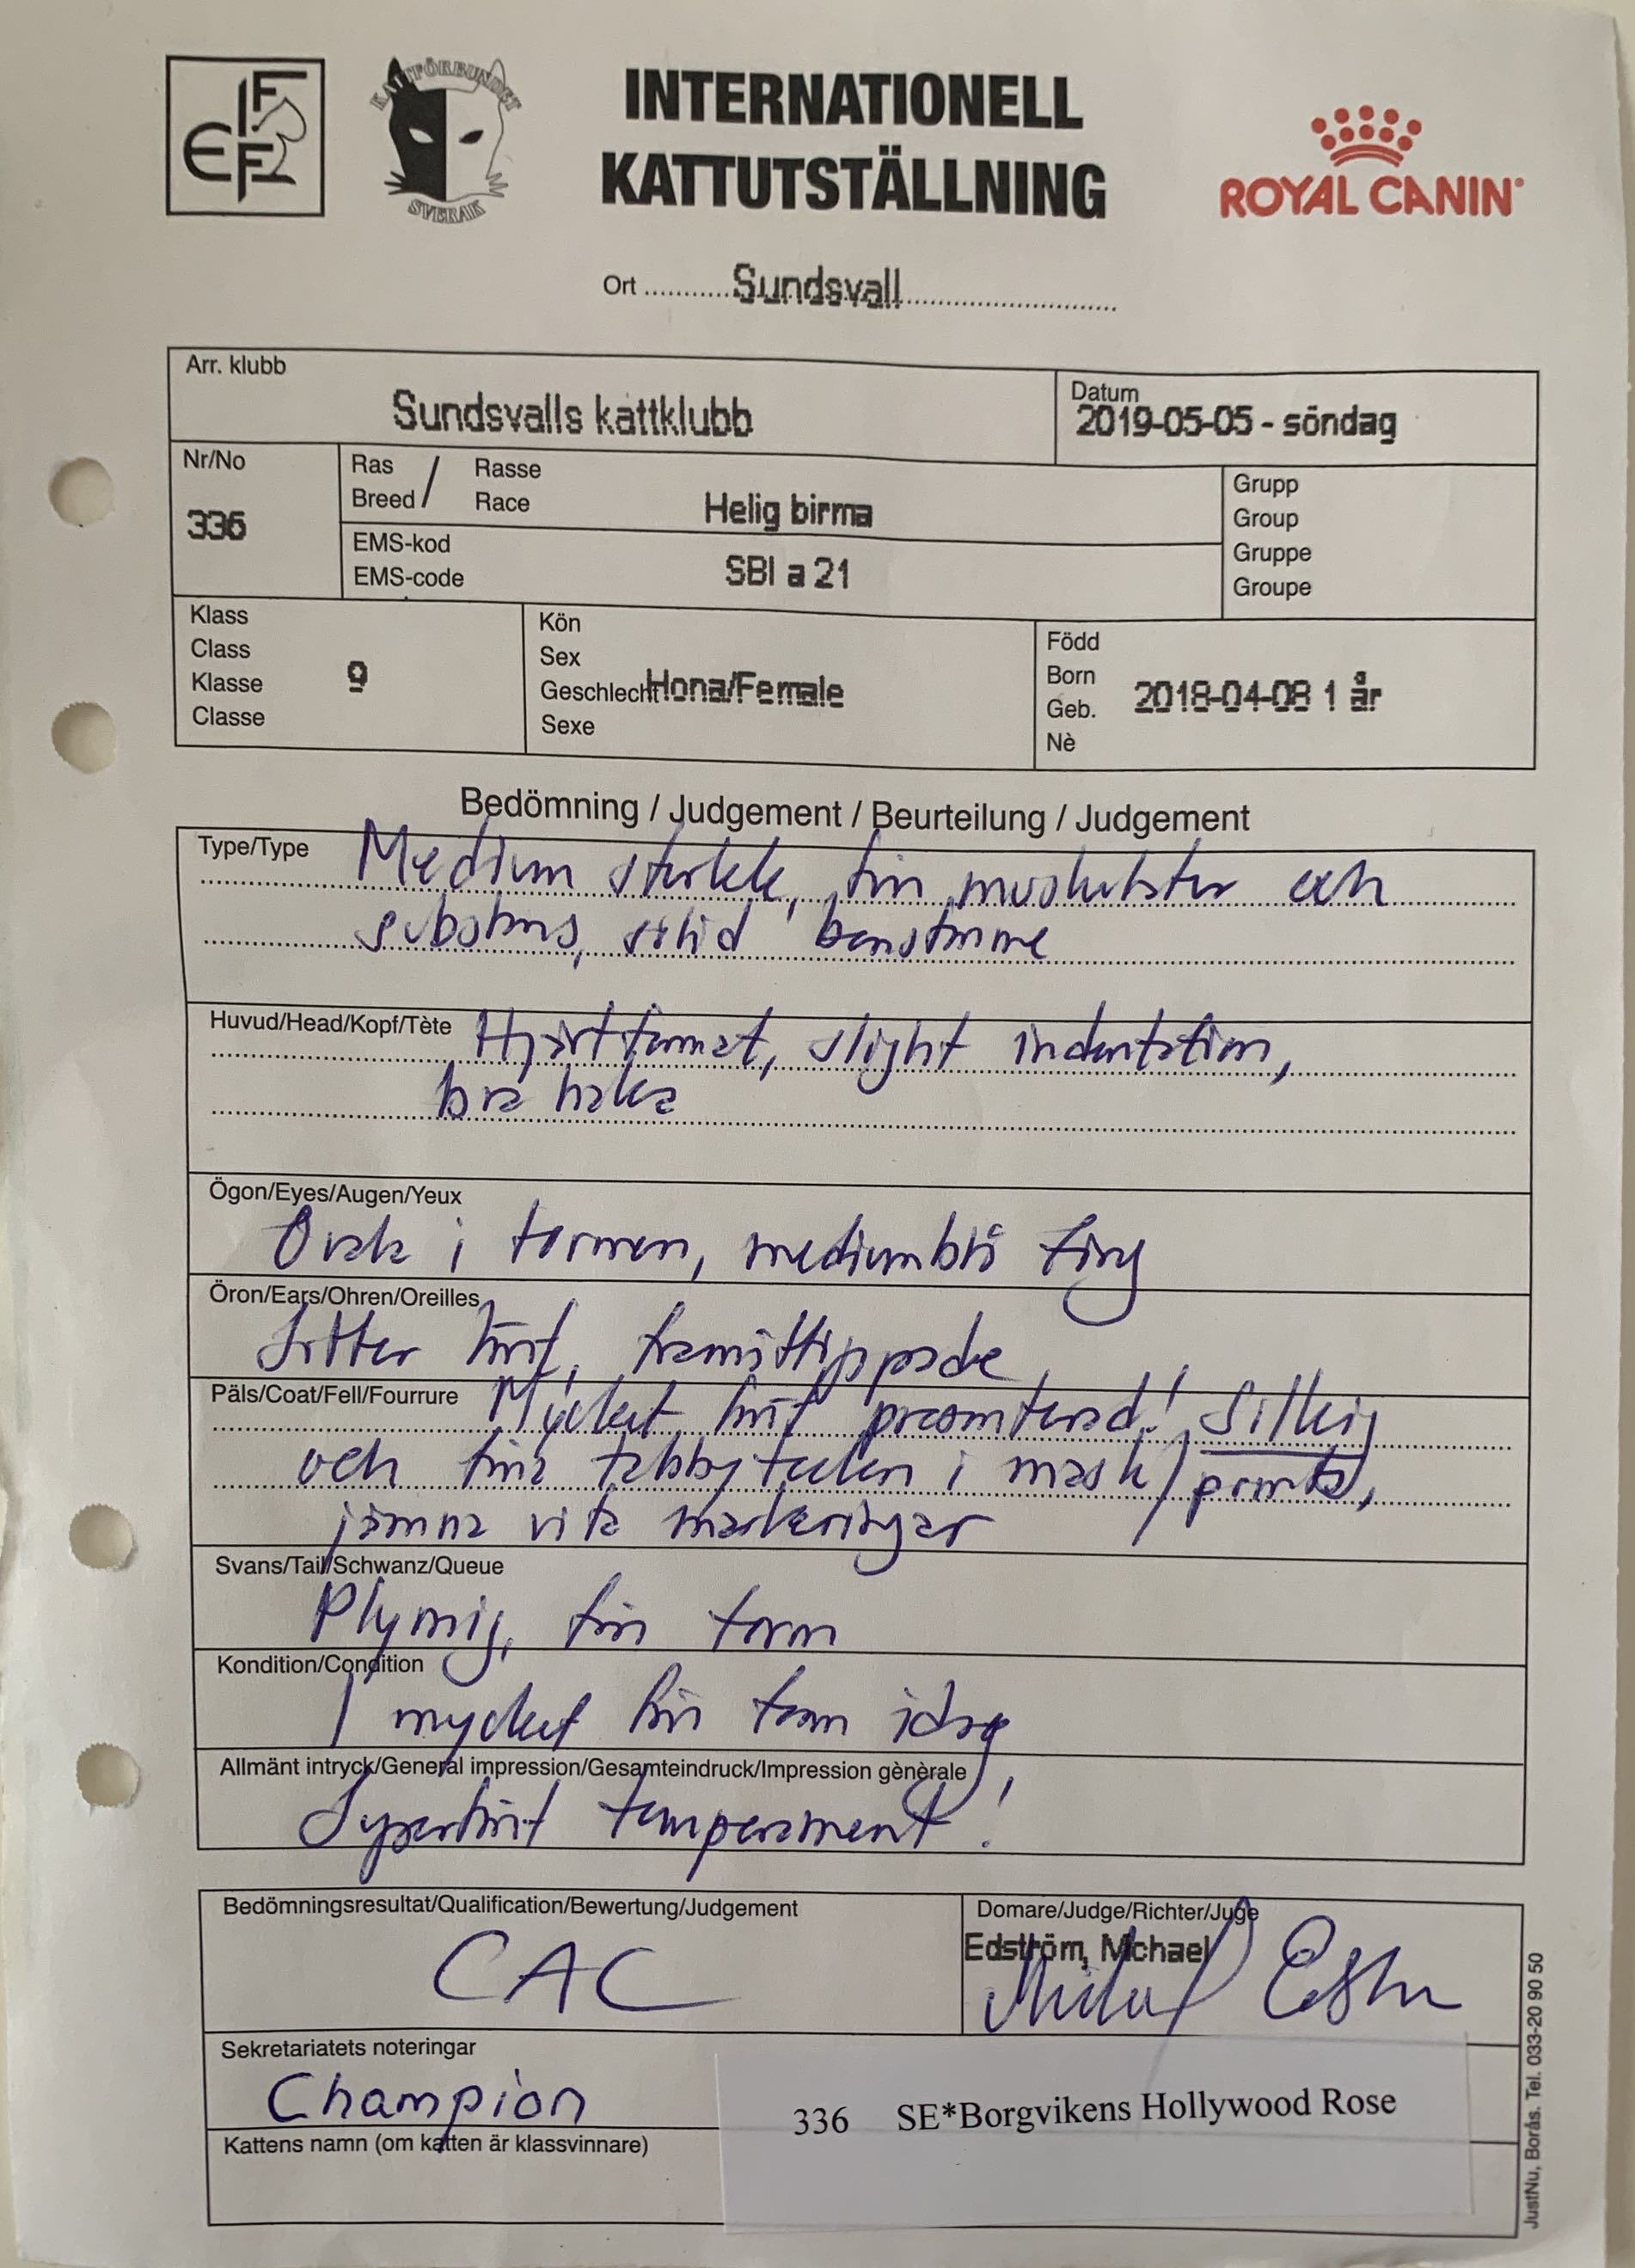 FIFE
KATTFÖRBUNDET
SVERAK
INTERNATIONELL
KATTUTSTÄLLNING
ROYAL CANIN
Ort Sundsvall
Arr. klubb
Sundsvalls kattklubb
Datum
2019-05-05 - söndag
Nr/No
336
Ras / Rasse
Breed / Race
Helig birma
EMS-kod
EMS-code
SBI a 21
Grupp
Group
Gruppe
Groupe
Klass
Class
Klasse
Classe
9
Kön
Sex
Geschlecht Hona/Female
Sexe
Född
Born
Geb.
Nè
2018-04-08 1 år
Bedömning / Judgement / Beurteilung / Judgement
Type/Type
Medium storlek, fin muskulatur och
substans, solid benstomme
Huvud/Head/Kopf/Tète
Hjärtformat, slight indentation,
bra haka
Ögon/Eyes/Augen/Yeux
Ovala i formen, mediumblå färg
Öron/Ears/Ohren/Oreilles
Sitter fint, framåttippade
Päls/Coat/Fell/Fourrure
Mycket fint presenterad! Silkig
och fina tabbytecken i mask/points,
jämna vita markeringar
Svans/Tail/Schwanz/Queue
Plymig, fin form
Kondition/Condition
I mycket fin form idag
Allmänt intryck/General impression/Gesamteindruck/Impression gènèrale
Superfint temperament!
Bedömningsresultat/Qualification/Bewertung/Judgement
CAC
Domare/Judge/Richter/Juge
Edström, Michael
Sekretariatets noteringar
Champion
336 SE*Borgvikens Hollywood Rose
Kattens namn (om katten är klassvinnare)
JustNu, Borås. Tel. 033-20 90 50